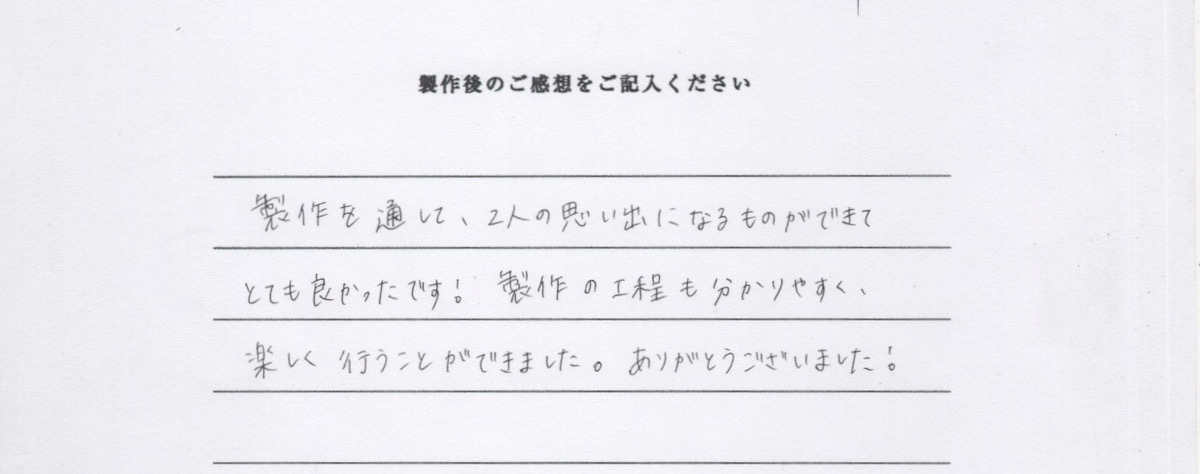 製作後のご感想をご記入ください
製作を通して、2人の思い出になるものができて
とても良かったです! 製作の工程も分かりやすく、
楽しく行うことができました。ありがとうございました!